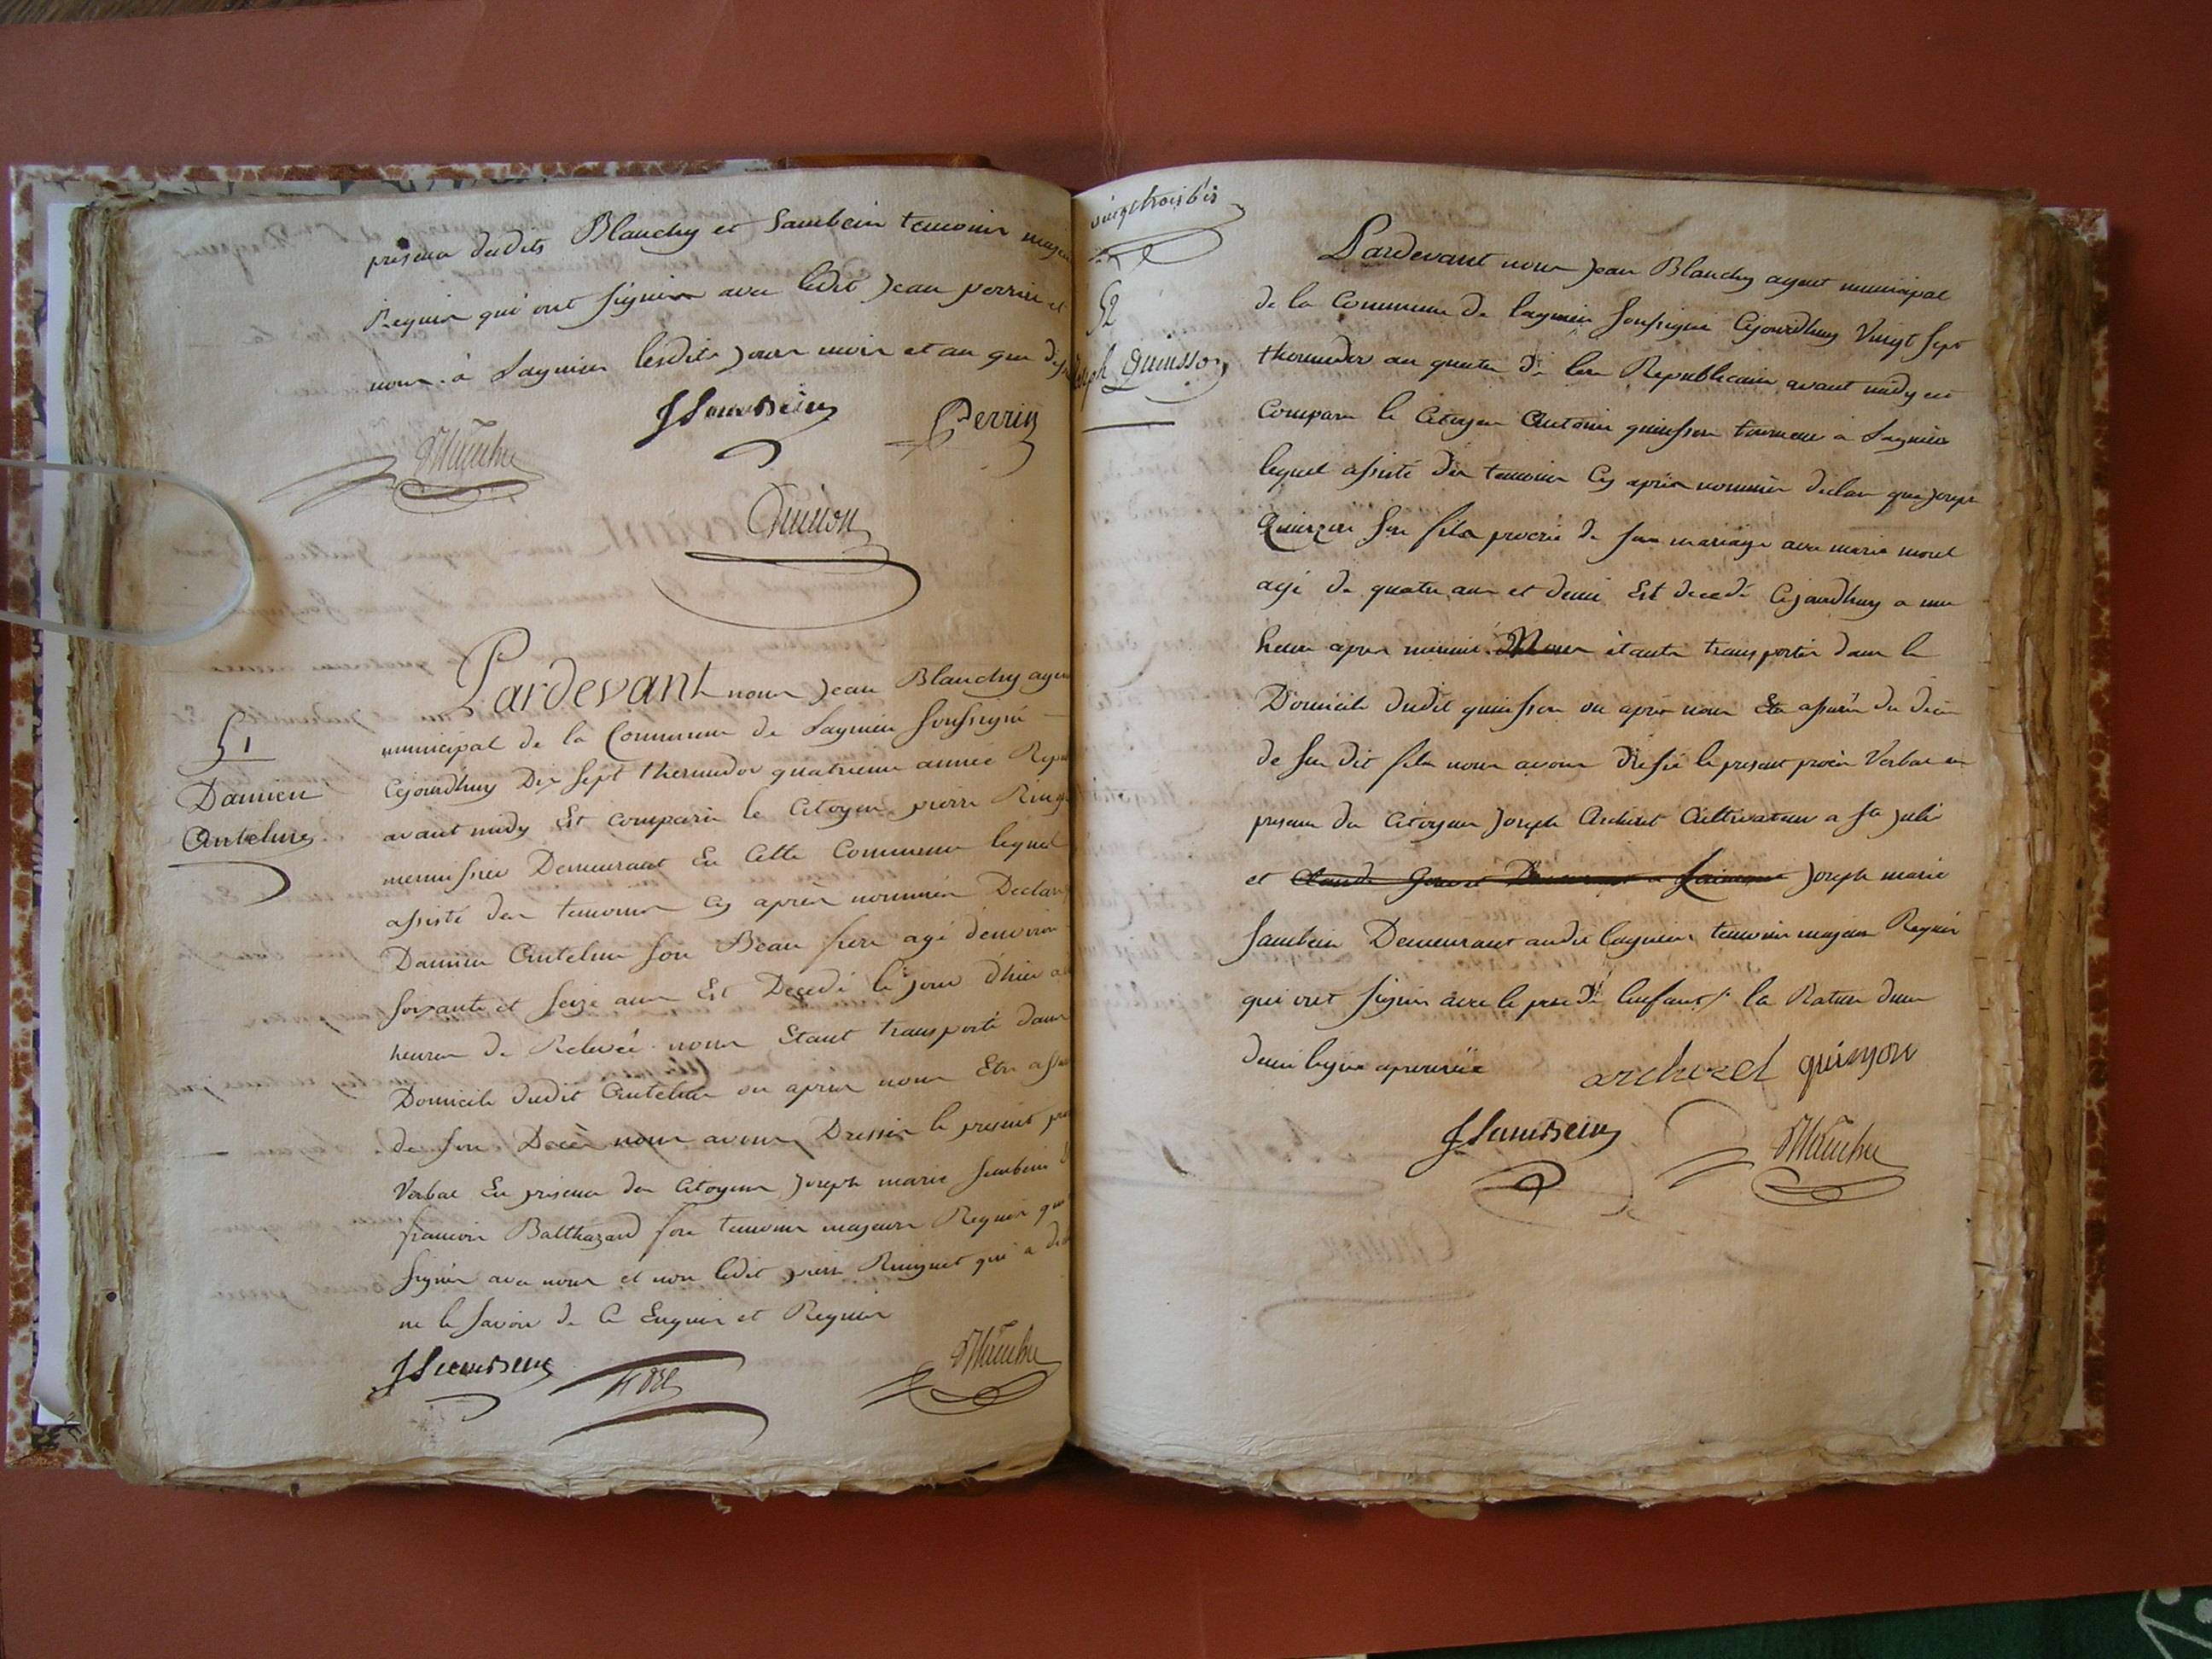 presence desdits Blanchy et Saubein temoins majeurs
Requis qui ont signés avec ledit Jean perrin et
nous. à Lagnieu lesdits jour mois et an que dess
JSaubein
Perrin
Blanchy
Quinson
51
Damien
Antelme
Pardevant nous Jean Blanchy agent
municipal de la Commune de Lagnieu soussigné
Cejourdhuy Dix sept thermidor quatrieme année Repu
avant midy Est comparu le Citoyen pierre Ring
menuisier Demeurant En Cette Commune lequel
assisté des temoins cy après nommés Declare
Damien Antelme son Beau frere agé denviron
soixante et seize ans Est Decedé le jour d'hier a
heures de Relevée. nous Etant transporté dans
Domicile dudit Antelme ou après nous Etre assu
de son Decès nous avons Dressés le present pro
Verbal En presence des Citoyens Joseph marie Saubein
francois Balthazard fore temoins majeurs Requis qui
signés avec nous et non ledit pierre Ringuet qui a de
ne le savoir de Ce Enquis et Requis
JSaubein
Blanchy
vingt trois bis
52
Joseph Quinsson
Pardevant nous Jean Blanchy agent municipal
de la Commune de lagnieu soussigné Cejourdhuy Vingt sept
thermidor an quatre de lere Republicaine avant midy est
Comparu le Citoyen Antoine quinsson tourneur a Lagnieu
lequel assisté des temoins Cy après nommés declare que joseph
Quinson son fils procréé de son mariage avec marie morel
agé de quatre ans et demi Est decedé Cejourdhuy a une
heure apres minuit. Nous étants transportés dans le
Domicile dudit quinsson ou après nous Etre assurés du deces
de son dit fils nous avons dressé le present procès Verbal en
presence des Citoyens Joseph Archiret Cultivateur a Ste julie
et Joseph marie
Saubein Demeurant audit lagnieu, temoins majeurs Requis
qui ont signés avec le pere de lenfant /. la Rature dune
demi ligne aprouvée
archeret quinson
JSaubein
Blanchy